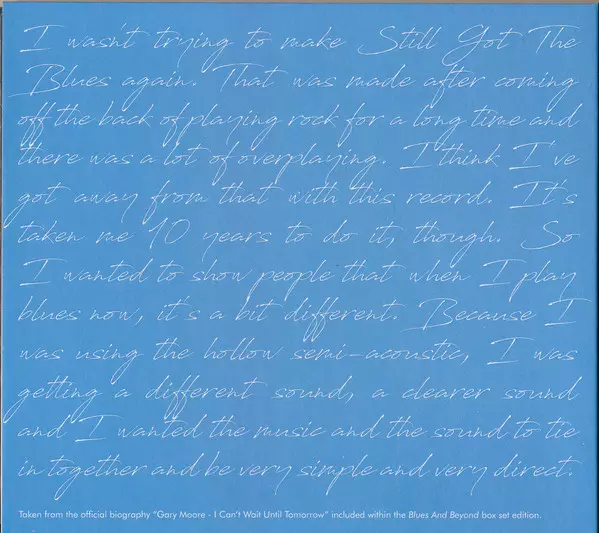 I wasn't trying to make Still Got The
Blues again. That was made after coming
off the back of playing rock for a long time and
there was a lot of overplaying. I think I've
got away from that with this record. It's
taken me 10 years to do it, though. So
I wanted to show people that when I play
blues now, it's a bit different. Because I
was using the hollow semi-acoustic, I was
getting a different sound, a clearer sound
and I wanted the music and the sound to tie
in together and be very simple and very direct.
Taken from the official biography "Gary Moore - I Can't Wait Until Tomorrow" included within the Blues And Beyond box set edition.